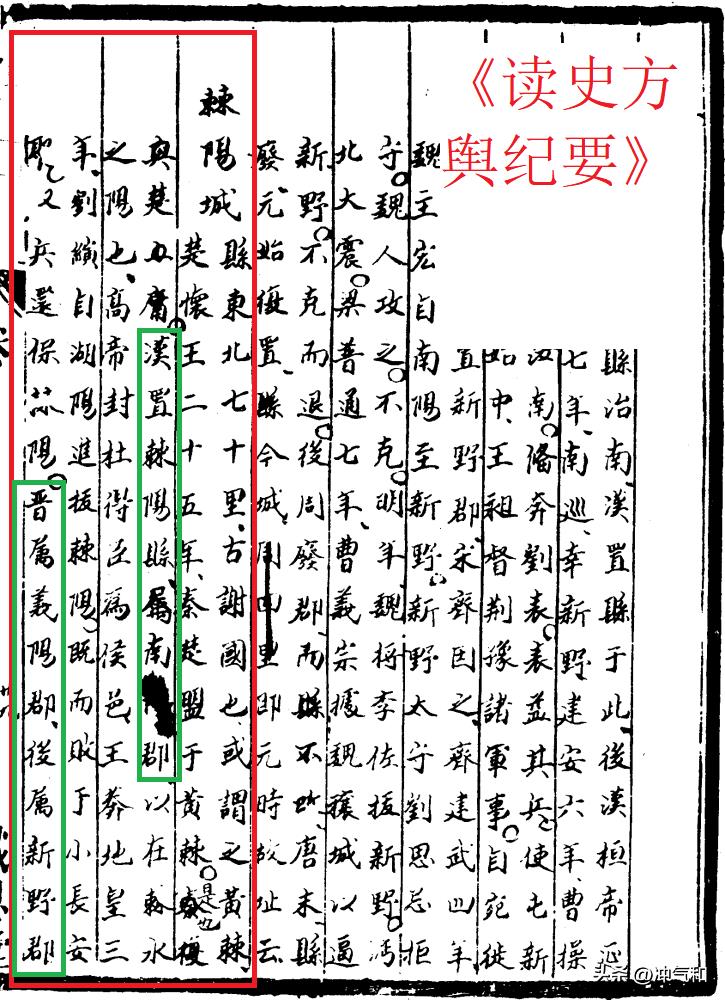 《读史方
舆纪要》
縣治南漢置縣于此後漢桓帝延
七年南巡幸新野建安六年曹操
汝南俻奔劉表表益其兵使屯新
始中王祖督荆豫諸軍事自宛徙
置新野郡宋齊因之齊建武四年
魏主宏自南陽至新野新野太守劉思忌拒
守魏人攻之不克明年魏将李佐拔新野沔
北大震梁普通七年曹義宗據魏穰城以逼
新野不克而退後周廢郡而縣不改唐末縣
廢元始復置縣今城周四里即元時故址云
棘陽城縣東北七十里古謝國也或謂之黄棘
楚懷王二十五年秦楚盟于黄棘是也復
與楚上庸漢置棘陽縣属南郡以在棘水
之陽也高帝封杜得臣為侯邑王莽地皇三
年劉縯自湖陽進拔棘陽既而敗于小長安
聚又兵還保棘陽晋属義陽郡後属新野郡
头条 @冲气和